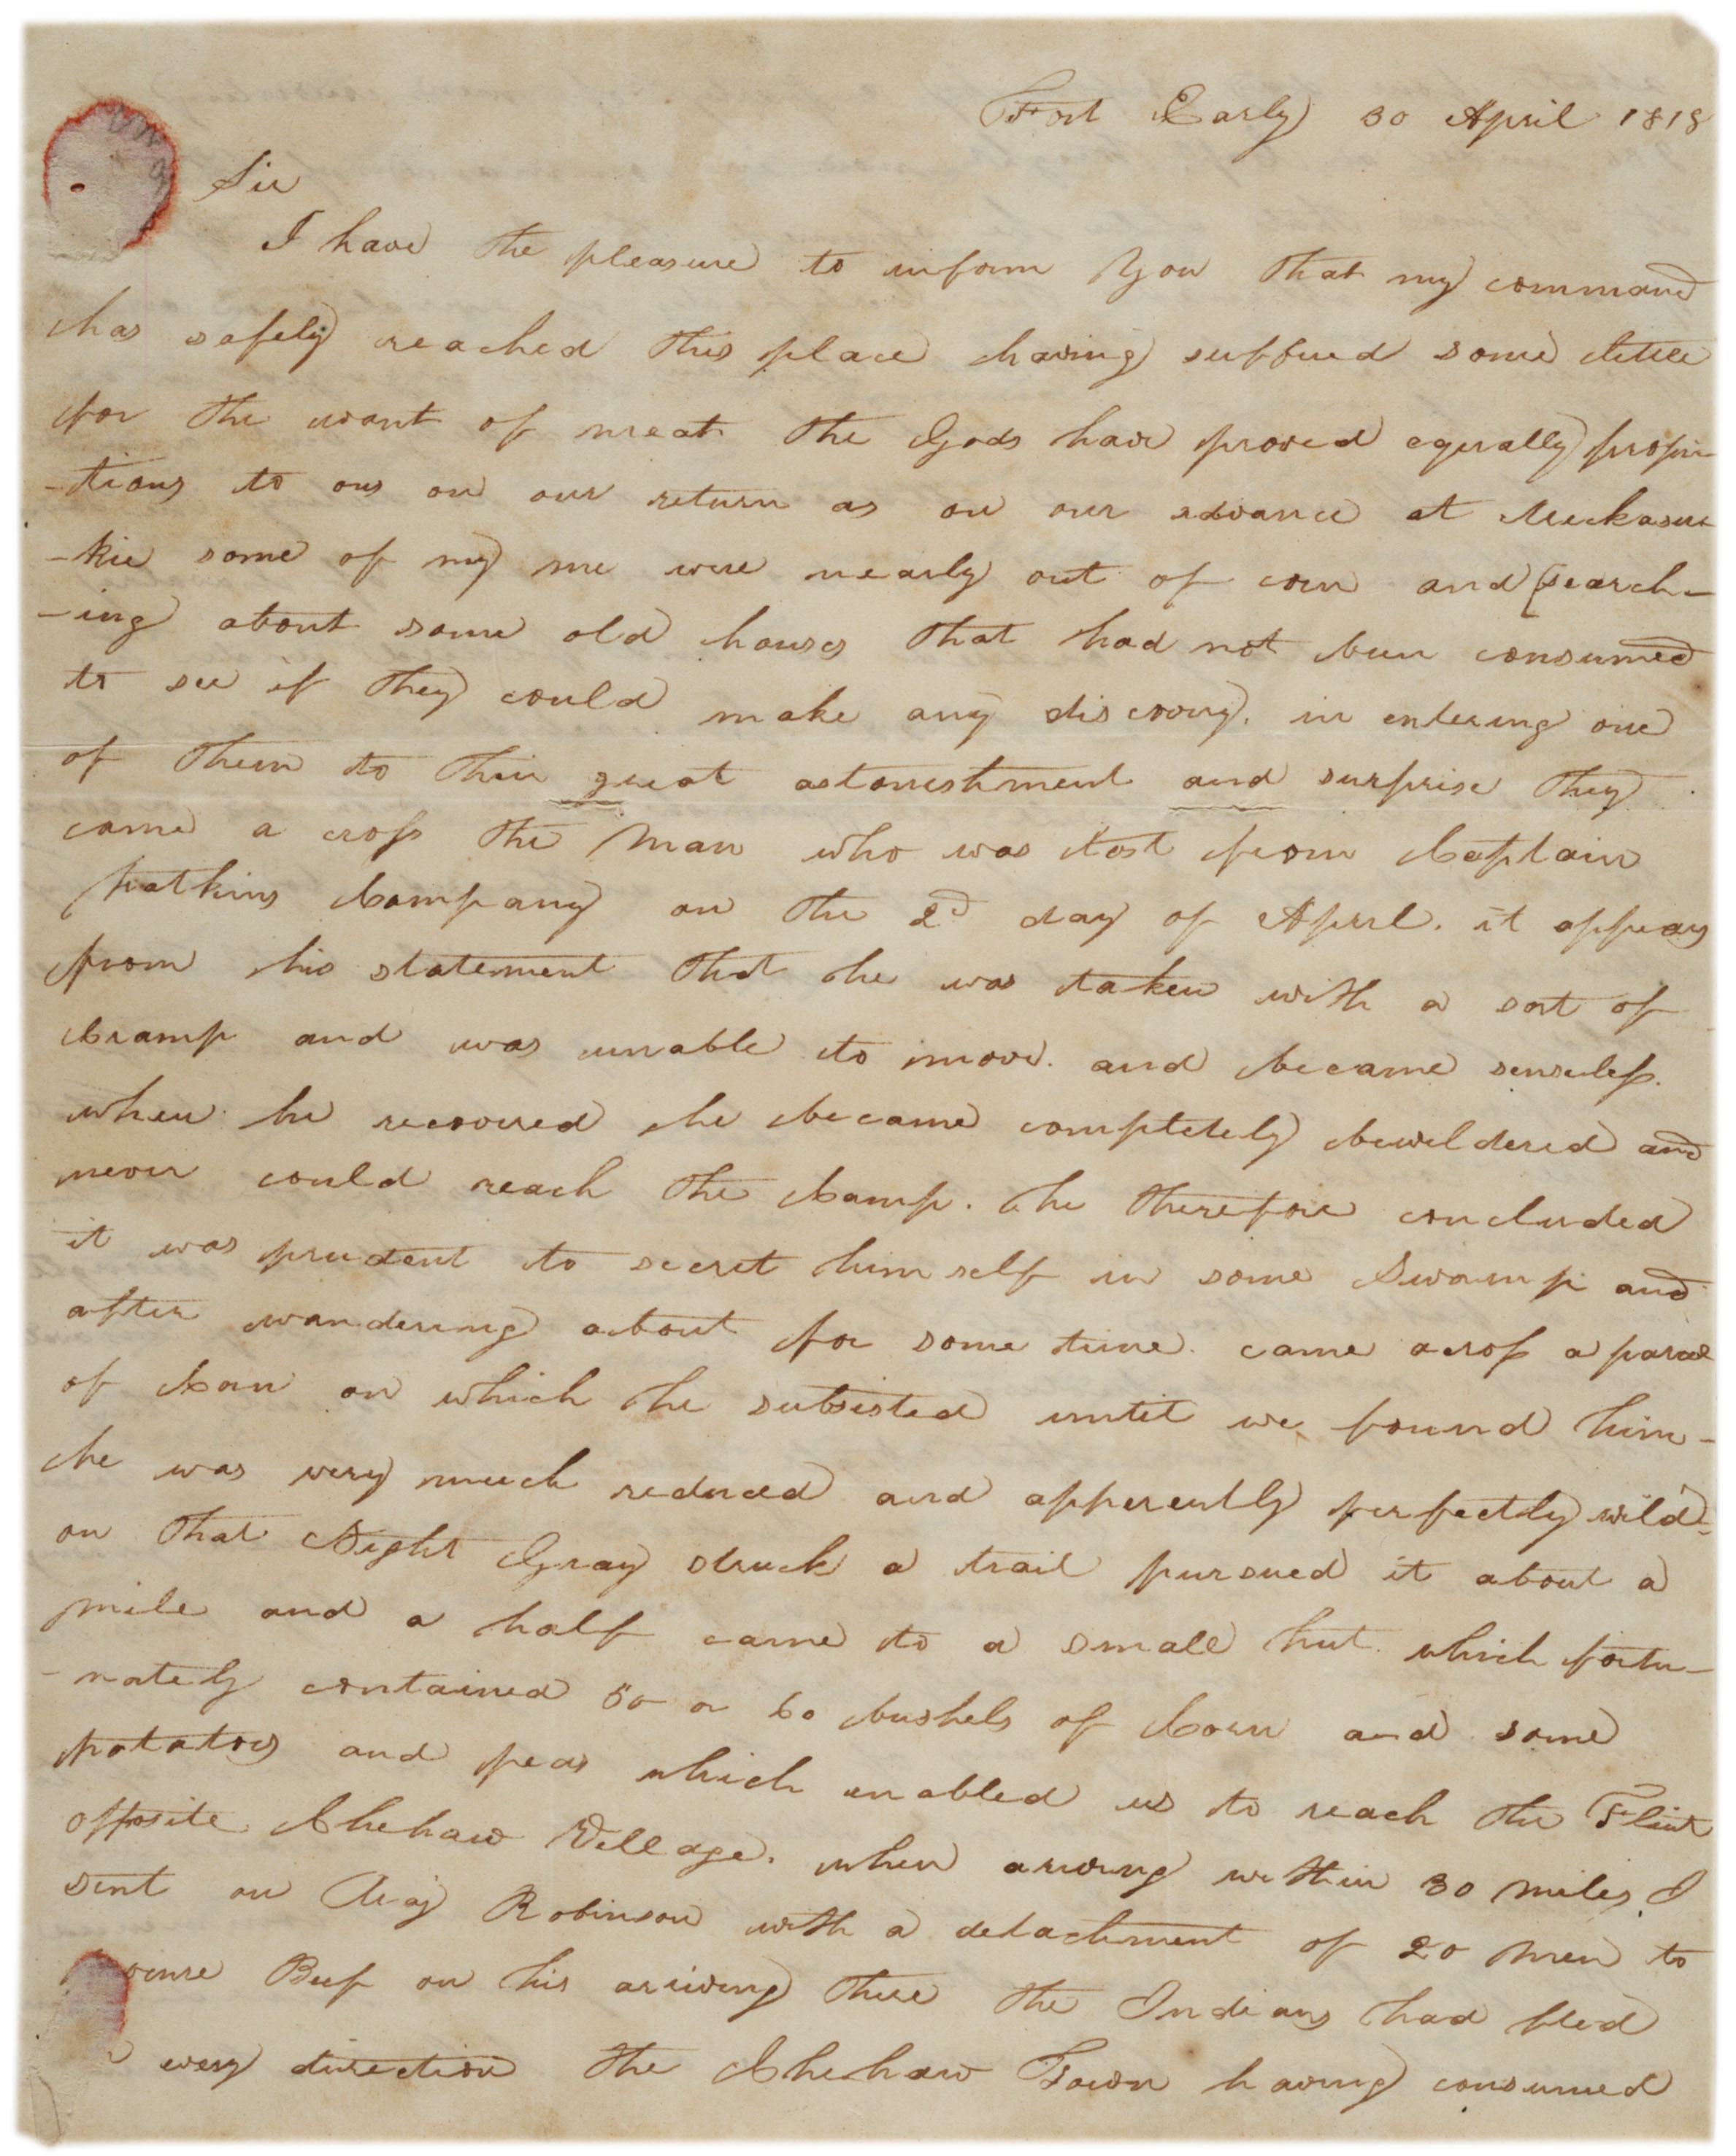 Fort Early 30 April 1818
Sir
I have the pleasure to inform you that my command
has safely reached this place having suffered some little
for the want of meat the Gods have proved equally propi-
-tious to ous on our return as on our advance at Muckasue-
-kie some of my me were nearly out of corn and search-
-ing about some old houses that had not been consumed
to see if they could make any discovery. in entering one
of them to their great astonishment and surprise they
came a cross the man who was lost from Captain
Watkins Company on the 2d day of April. it appears
from his statement that he was taken with a sort of
Cramp and was unable to move. and became senseless.
when he recovered he became completely bewildered and
never could reach the Camp. he therefore concluded
it was prudent to secret himself in some Swamp and
after wandering about for some time. came across a parcel
of Corn on which he subsisted until we found him-
he was very much reduced and apperently perfectly wild-
on that Night Gray struck a trail pursued it about a
mile and a half came to a small hut which fortu-
-nately contained 50 or 60 bushels of Corn and some
potatoes and peas which enabled us to reach the Flint
opposite Chehaw Village. when ariving within 30 miles I
sent on Maj Robinson with a detachment of 20 men to
Beef on his ariving there the Indians had fled
every direction the Chehaw Town having consumed